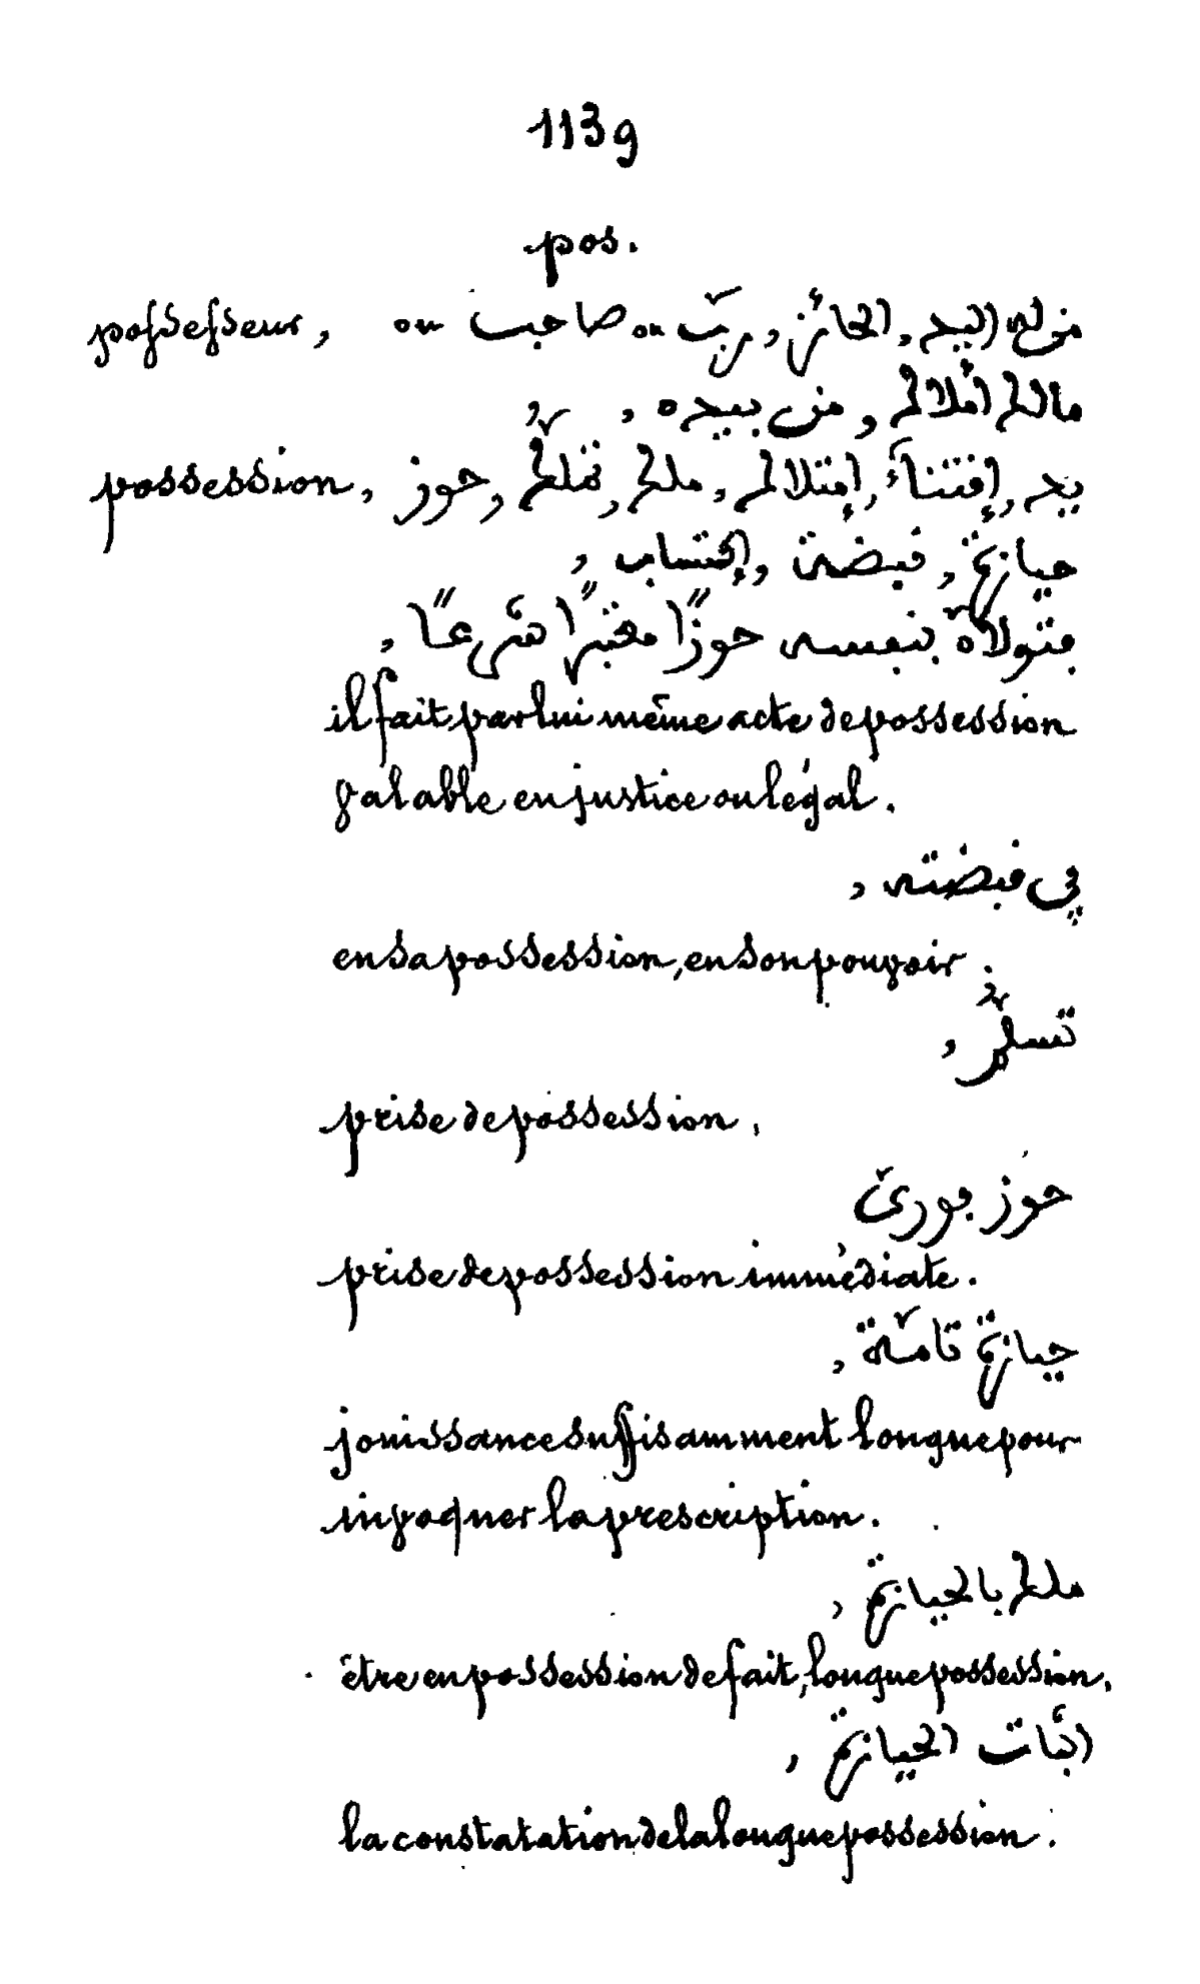 1139
pos.
possesseur, من له اليد, الحائز, ربّ ou صاحب ou
مالك أملاك, من بيده,
possession, يد, إقتناءَ, إمتلاك, ملك, تملّك, حوز,
حيازة, قبضة, إكتساب,
بتولاّه بنفسه حوزًا معتبرًا شرعًا,
il fait par lui même acte de possession
valable en justice ou légal.
في قبضته,
en sa possession, en son pouvoir.
تسلّم,
prise de possession.
حوز فوريّ
prise de possession immédiate.
حيازة تامّة,
jouissance suffisamment longue pour
invoquer la prescription.
ملك بالحيازة,
être en possession de fait, longue possession.
اثبات الحيازة,
la constatation de la longue possession.